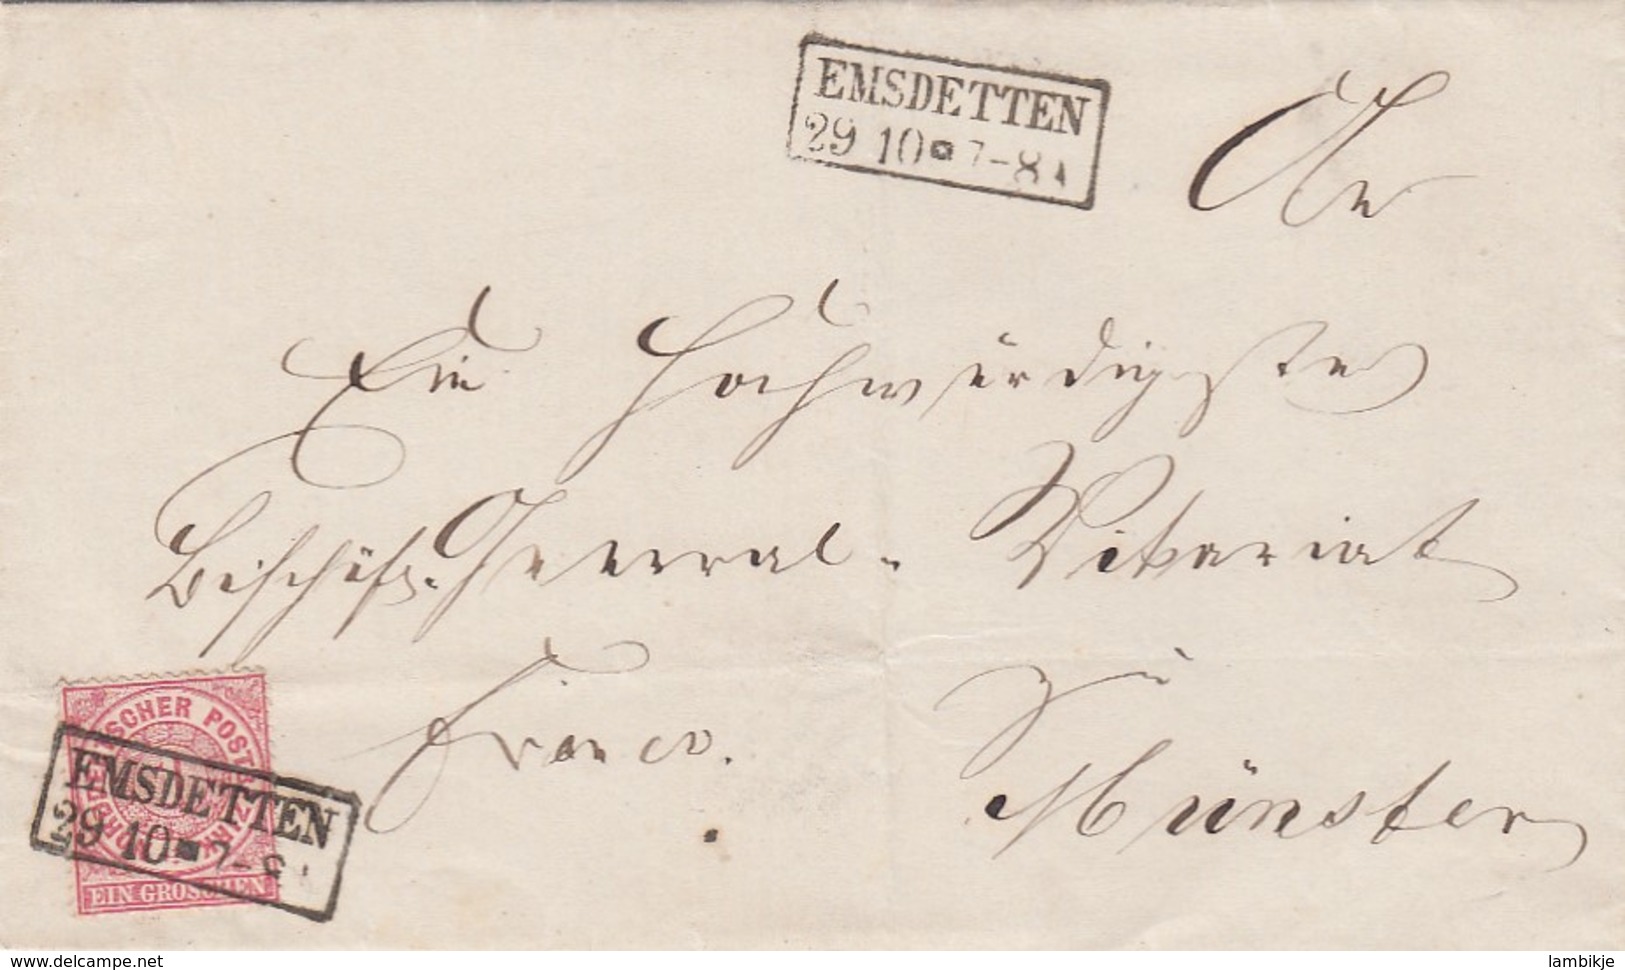 EMSDETTEN
29 10 7-8
An
Ein Hochwürdigstes
Bischöfl. General-Vikariat
Franco.
zu
Münster
NORDDEUTSCHER POSTBEZIRK
EIN GROSCHEN
EMSDETTEN
29 10 7-8
www.delcampe.net
lambikje